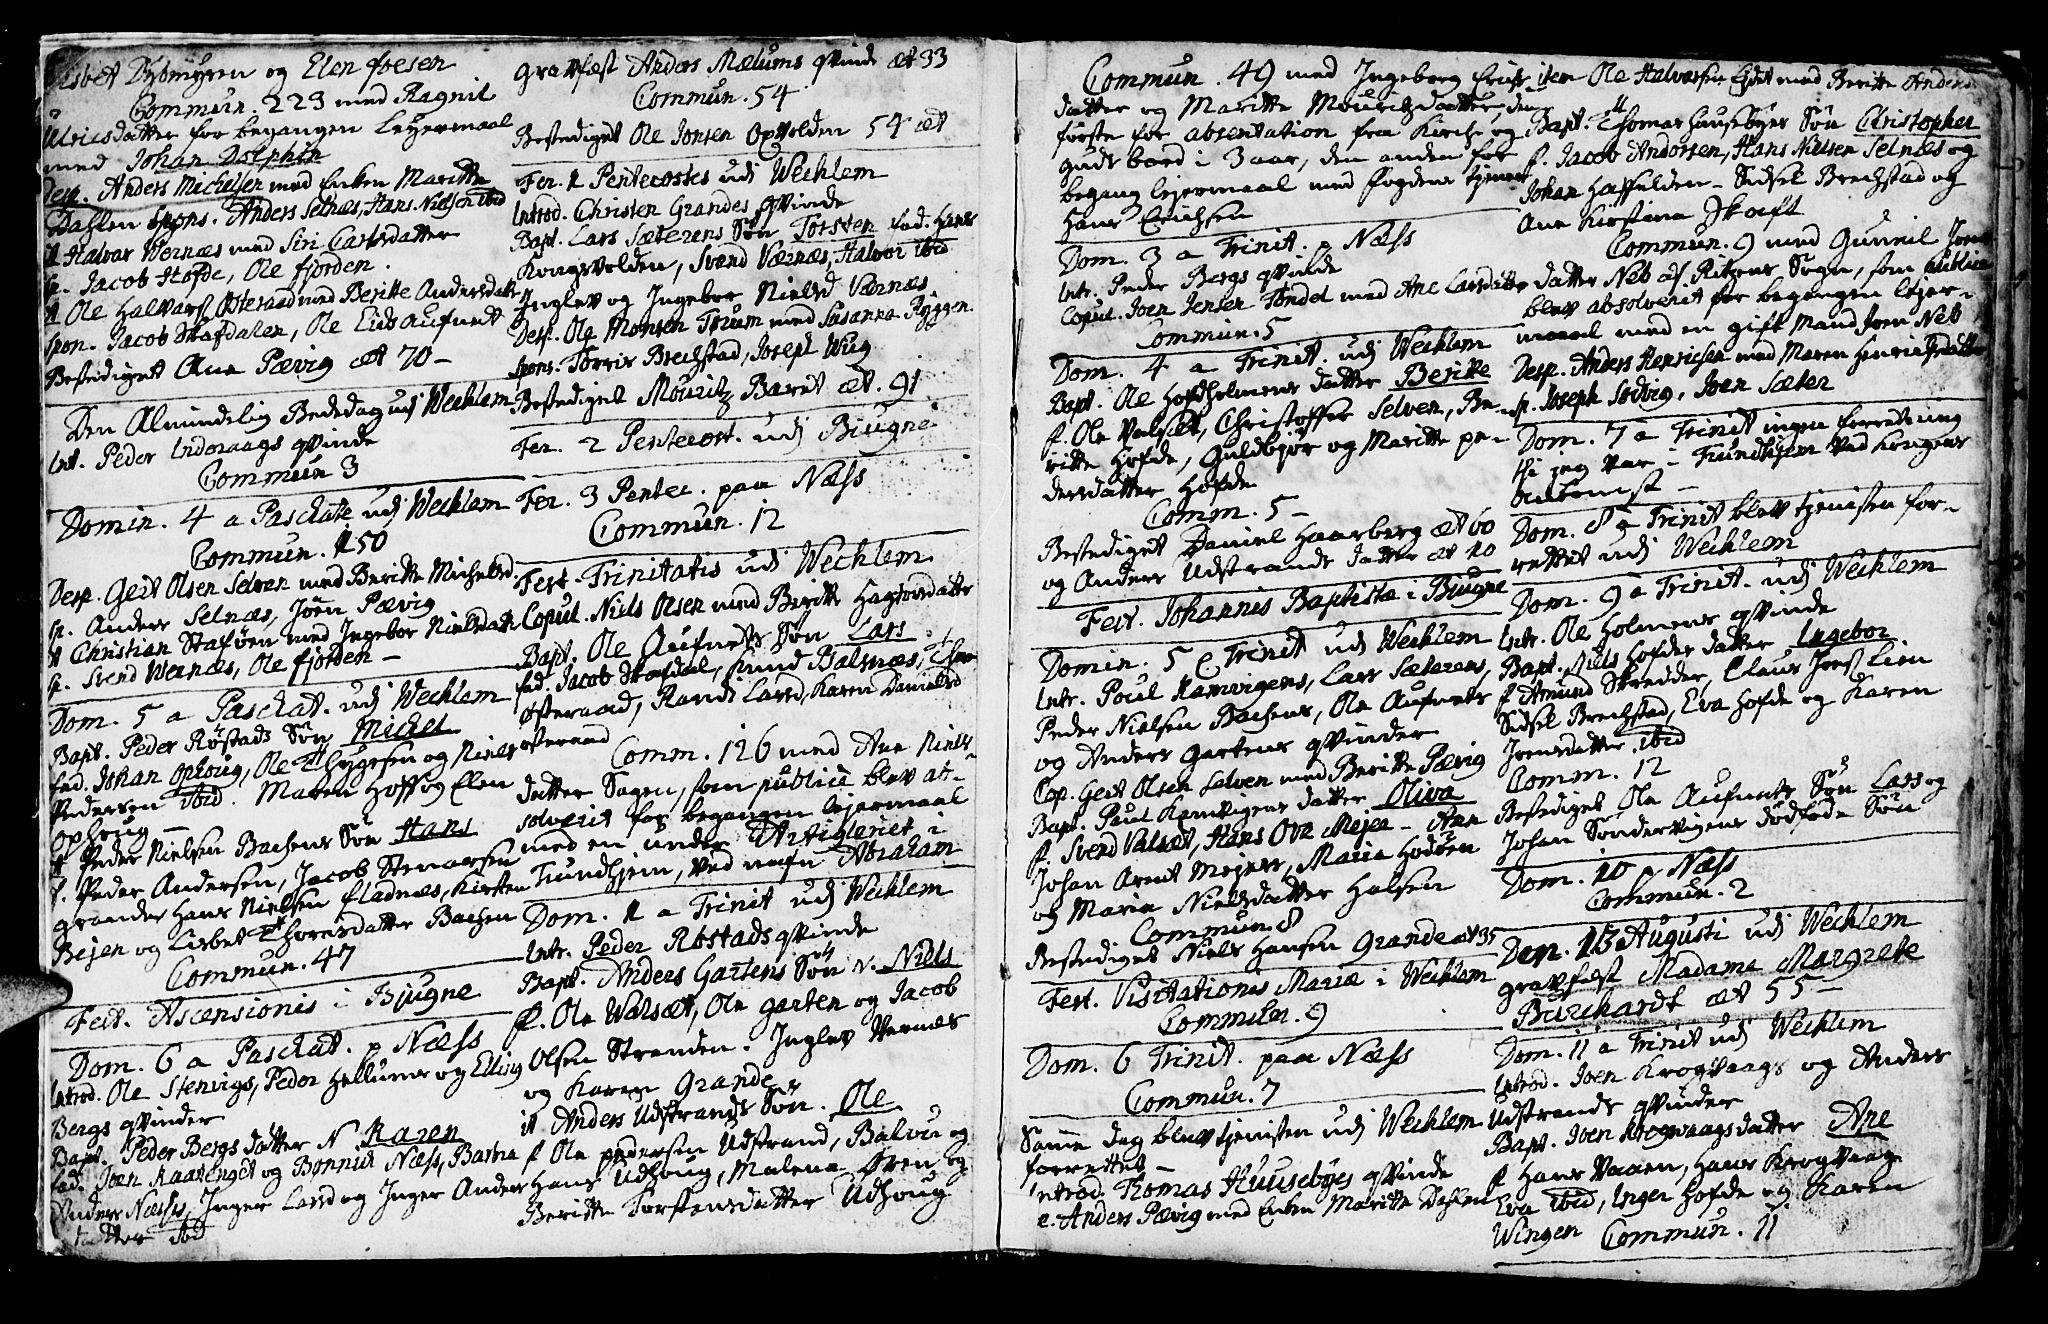 Lisbet Dybmyren og Elen foesen
Commun. 223 med Ragnil
Ulricsdatter for begangen Leyermaal
med Johan Dolphin
Desp. Anders Michelsen med Enken Maritte
Dahlen spons. Anders Selnæs, Hans Nielsen ibid
it Halvar Wernæs med Siri Carlsdatter
sp. Jacob Hofde, Ole fjorden.
it Ole Halvars. Østeraad med Beritte Andersdatt
spon. Jacob Skafdalen, Ole Eids Aufnedt
Bestediget Ane Pævig æt 70 -
Den Almindelig Bededag udj Wechlem
Int. Peder Indraags qvinde
Commun 3
Domin. 4 a Paschate udj Wechlem
Commun. 150
Desp. Gert Olsen Selven med Beritte Michelsd.
sp. Anders Selnæs, Jøen Pævig
it Christian Staføen med Ingebor Nielsdatt
sp. Svend Wernæs, Ole fjorden -
Dom. 5 a Paschat. udj Wechlem
Bapt. Peder Røstads Søn Michel
fad. Johan Ophoug, Ole Thygesen og Niels
Pedersen ibid. Maren Hoff og Elen
Ophoug -
it Peder Nielsen Bachens Søn Hans
f. Peder Andersen, Jacob Stenersen
grander Hans Nielsen fladnæs, Kirsten
Bejen og Lisbet Thoresdatter Bachen
Commun. 47
Fest. Ascensionis i Bjugne
Dom. 6 a Paschat. p Næss
Introd. Ole Stenvigs, Peder Hellums og Elling
Bergs qvinder
Bapt. Peder Bergs datter N Karen
fad. Joen Raaenget og Bonnit Næss, Barbra
Anders Næsses, Inger Larsd og Inger Anders
datter ibid
gravfæst Anders Mælums qvinde æt 33
Commun. 54
Bestediget Ole Jonsen Opvolden 54 æt
Fer. 1 Pentecostes udj Wechlem
Introd. Christen Grandes qvinde
Bapt. Lars Sæterens Søn Torsten fad. Hans
Kongsvolden, Svend Værnæs, Halvor ibid
Inglev og Ingebor Nielsd Værnæs
Desp. Ole Monsen Trum med Susanna Ryggen
spons. Torris Brechstad, Joseph Wug
Bestediget Mouritz Baret æt. 91
Fer. 2 Pentecost. udj Biugne
Fer. 3 Pentec. paa Næss
Commun. 12
Fest. Trinitatis udj Wechlem
Copul. Niels Olsen med Beritte Hagtorsdatter
Bapt. Ole Aufnets Søn Lars
fad. Jacob Skafdal, Knud Balsnæs,
Østeraad, Randi Larsd, Karen Danielsd
osteraad
Comm. 126 med Ane Niels
datter Sagen, som publicè blev ab-
solverit for begangen lejermaal
med en under Artigleriet i
Trundhjem, ved nafn Abraham
Dom. 1 a Trinit udj Wechlem
Intr. Peder Røstads qvinde
Bapt. Anders Gartens Søn N. Niels
f. Ole Walsæt, Ole garten og Jacob
Olsen Stranden. Inglev Wernæs
og Karen Grande
it Anders Udstrands Søn. Ole
f Ole pedersen Udstrand, Balvii og
Hans Udhoug, Malena Øren og
Beritte Torstensdatter Udhoug
Commun. 49 med Ingeborg Erichs
datter og Maritte Mouritzdatter, den
første for absentation fra Kirche og
Guds bord i 3 aar, den anden for
begang lejermaal med fogdens tjener
Hans Erichsen
Dom. 3 a Trinit. p Næss
Intr. Peder Bergs qvinde
Copul. Joen Jensen Tendel med Ane Larsdatter
Commun. 5
Dom. 4 a Trinit. udj Wechlem
Bapt. Ole Hofdholmens datter Beritte
f. Ole Valsæt, Christoffer Selven, Be-
ritte Hofde, Guldbjør og Maritte pe-
dersdatter Hofde
Comm. 5 -
Bestediget Daniel Haarberg æt 60
og Anders Udstrands datter æt 10
Fest. Johannis Baptistæ i Biugne
Domin. 5 a Trinit udj Wechlem
Intr. Poul Ramvigens, Lars Sæterens,
Peder Nielsen Bachens, Ole Aufnets
og Anders Gartens qvinder
Cop. Gert Olsen Selven med Beritte Pævig
Bapt. Paul Ramvigens datter Oliva
f. Svend Valsæt, Hans Ove Mejer - Ane
Johan Arent Mejers, Maria Hodøen
og Maria Nielsdatter Halsen
Commun. 8
Bestediget Niels Hansen Grande æt 35
Fest. Visitationis Mariæ i Wechlem
Commun. 9
Dom. 6 Trinit. paa Næss
Commun. 7
Samme dag blev tjenisten udj Wechlem
forrettet -
Introd. Thomas Huusebyes qvinde
c. Anders Pævig med Enken Maritte Dahlen
item Ole Halvorsen Eydet med Beritte Anders
Bapt. Thomas Hausebyes Søn Christopher
f. Jacob Andersen, Hans Nielsen Selnæs og
Johan Haffelden - Sidsel Brechstad og
Ane Kirstina Skaft
Commun. 9 med Gunnil Joens
datter Neb af Ritzens Sogn, som publice
blev absolveret for begangen lejer-
maal med en gift Mand Joen Neb
Desp. Anders Henricsen med Maren Henricsdatter
sp. Joseph Sødvig, Joen Sæter
Dom. 7 a Trinit ingen forretning
thi jeg var i Trundhjem ved Kongens
ankomst -
Dom. 8 a Trinit blev tjenisten for-
rettet udj Wechlem
Dom. 9 a Trinit. udj Wechlem
Intr. Ole Holmens qvinde
Bapt. Niels Hofdes datter Ingebor
f Amund Skredder, Claus Joens. Lien
Sidsel Brechstad, Eva Hofde og Karen
Joensdatter ibid
Comm. 12
Bestediget Ole Aufnets Søn Lars og
Johan Søndervigens dødføde Søn
Dom. 10 p Næss
Commun. 2
Den. 13 Augusti udj Wechlem
gravfæst Madame Margrete
Burchardt æt 55 -
Dom. 11 a Trinit udj Wechlem
Introd. Joen Krogvaags og Anders
Udstrands qvinder
Bapt. Joen Krogvaags datter Ane
f Hans Vaaen, Hans Krogvaag
Eva ibid, Inger Hofde og Karen
Wingen Commun. 11